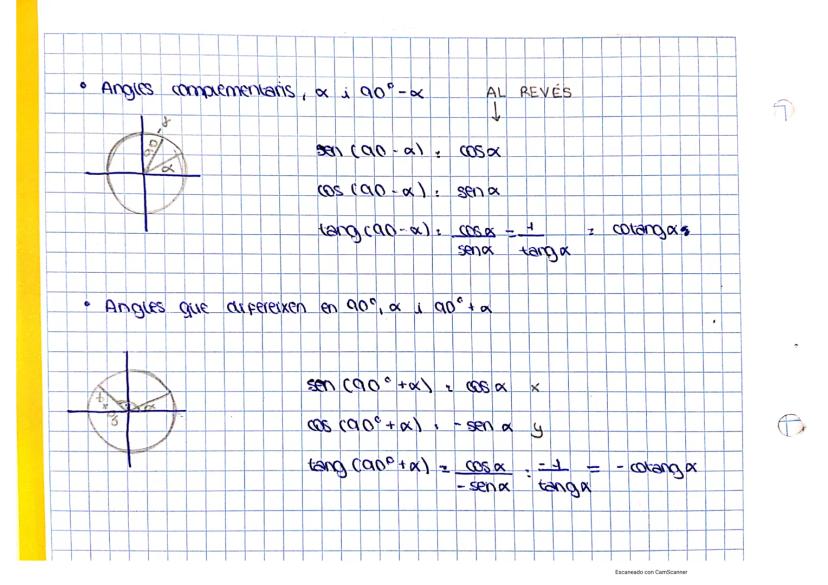 • Angles complementaris, α i 90º-α
AL REVÉS
↓
90-α
α
sen (90-α) = cosα
cos (90-α) = senα
tang (90-α) = cosα/senα = 1/tangα = cotangα
• Angles que difereixen en 90º, α i 90º+α
α
sen (90º+α) = cosα x
cos (90º+α) = -sen α y
tang (90º+α) = cosα/-senα = -1/tangα = -cotangα
Escaneado con CamScanner